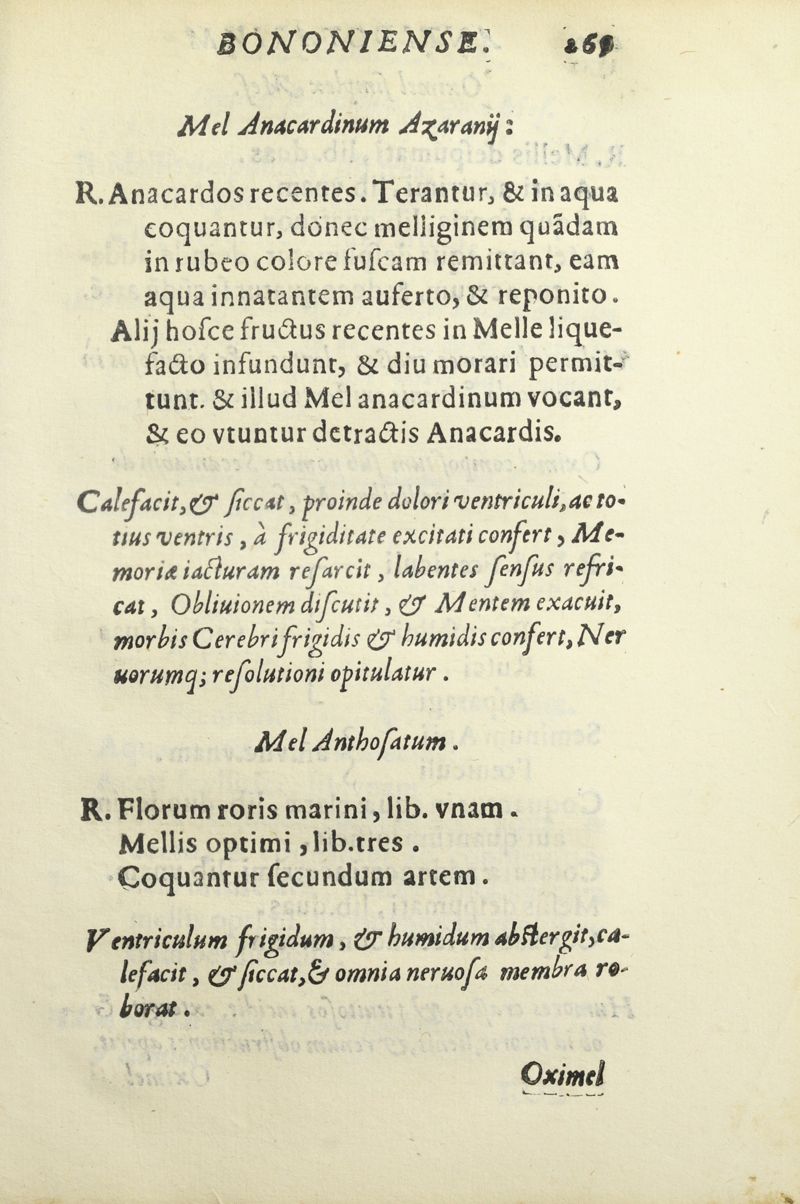 BONONIENSE.
Mel Anacardinum Azaranij:
R. Anacardos recentes. Terantur, & in aqua
coquantur, donec melliginem quãdam
in rubeo colore fuſcam remittant, eam
aqua innatantem auferto, & reponito.
Alij hoſce fructus recentes in Melle lique-
facto infundunt, & diu morari permit-
tunt. & illud Mel anacardinum vocant,
& eo vtuntur detractis Anacardis.
Calefacit, & ſiccat, proinde dolori ventriculi, ac to-
tius ventris, à frigiditate excitati confert, Me-
moriæ iacturam reſarcit, labentes ſenſus refri-
cat, Obliuionem diſcutit, & Mentem exacuit,
morbis Cerebri frigidis & humidis confert, Ner
uorumq; reſolutioni opitulatur.
Mel Anthoſatum.
R. Florum roris marini, lib. vnam.
Mellis optimi, lib. tres.
Coquantur ſecundum artem.
Ventriculum frigidum, & humidum abſtergit, ca-
lefacit, & ſiccat, & omnia neruoſa membra ro-
borat.
Oximel